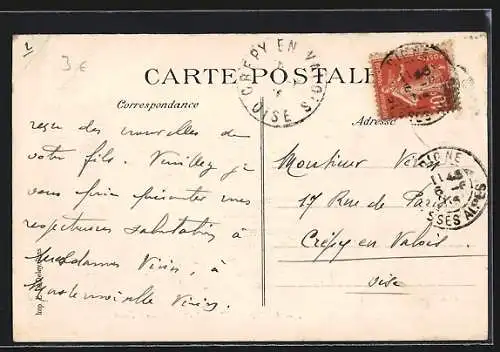 3 €
CARTE POSTALE
CREPY EN VALOIS
OISE
Correspondance
Adresse
reçu des nouvelles de
votre fils. Veuillez je
vous prie présenter mes
respectueuses salutations à
Mesdames à
Mademoiselle
Monsieur
17 Rue de Paris
Crépy en Valois
Oise
DIGNE
BSES ALPES
Imp.